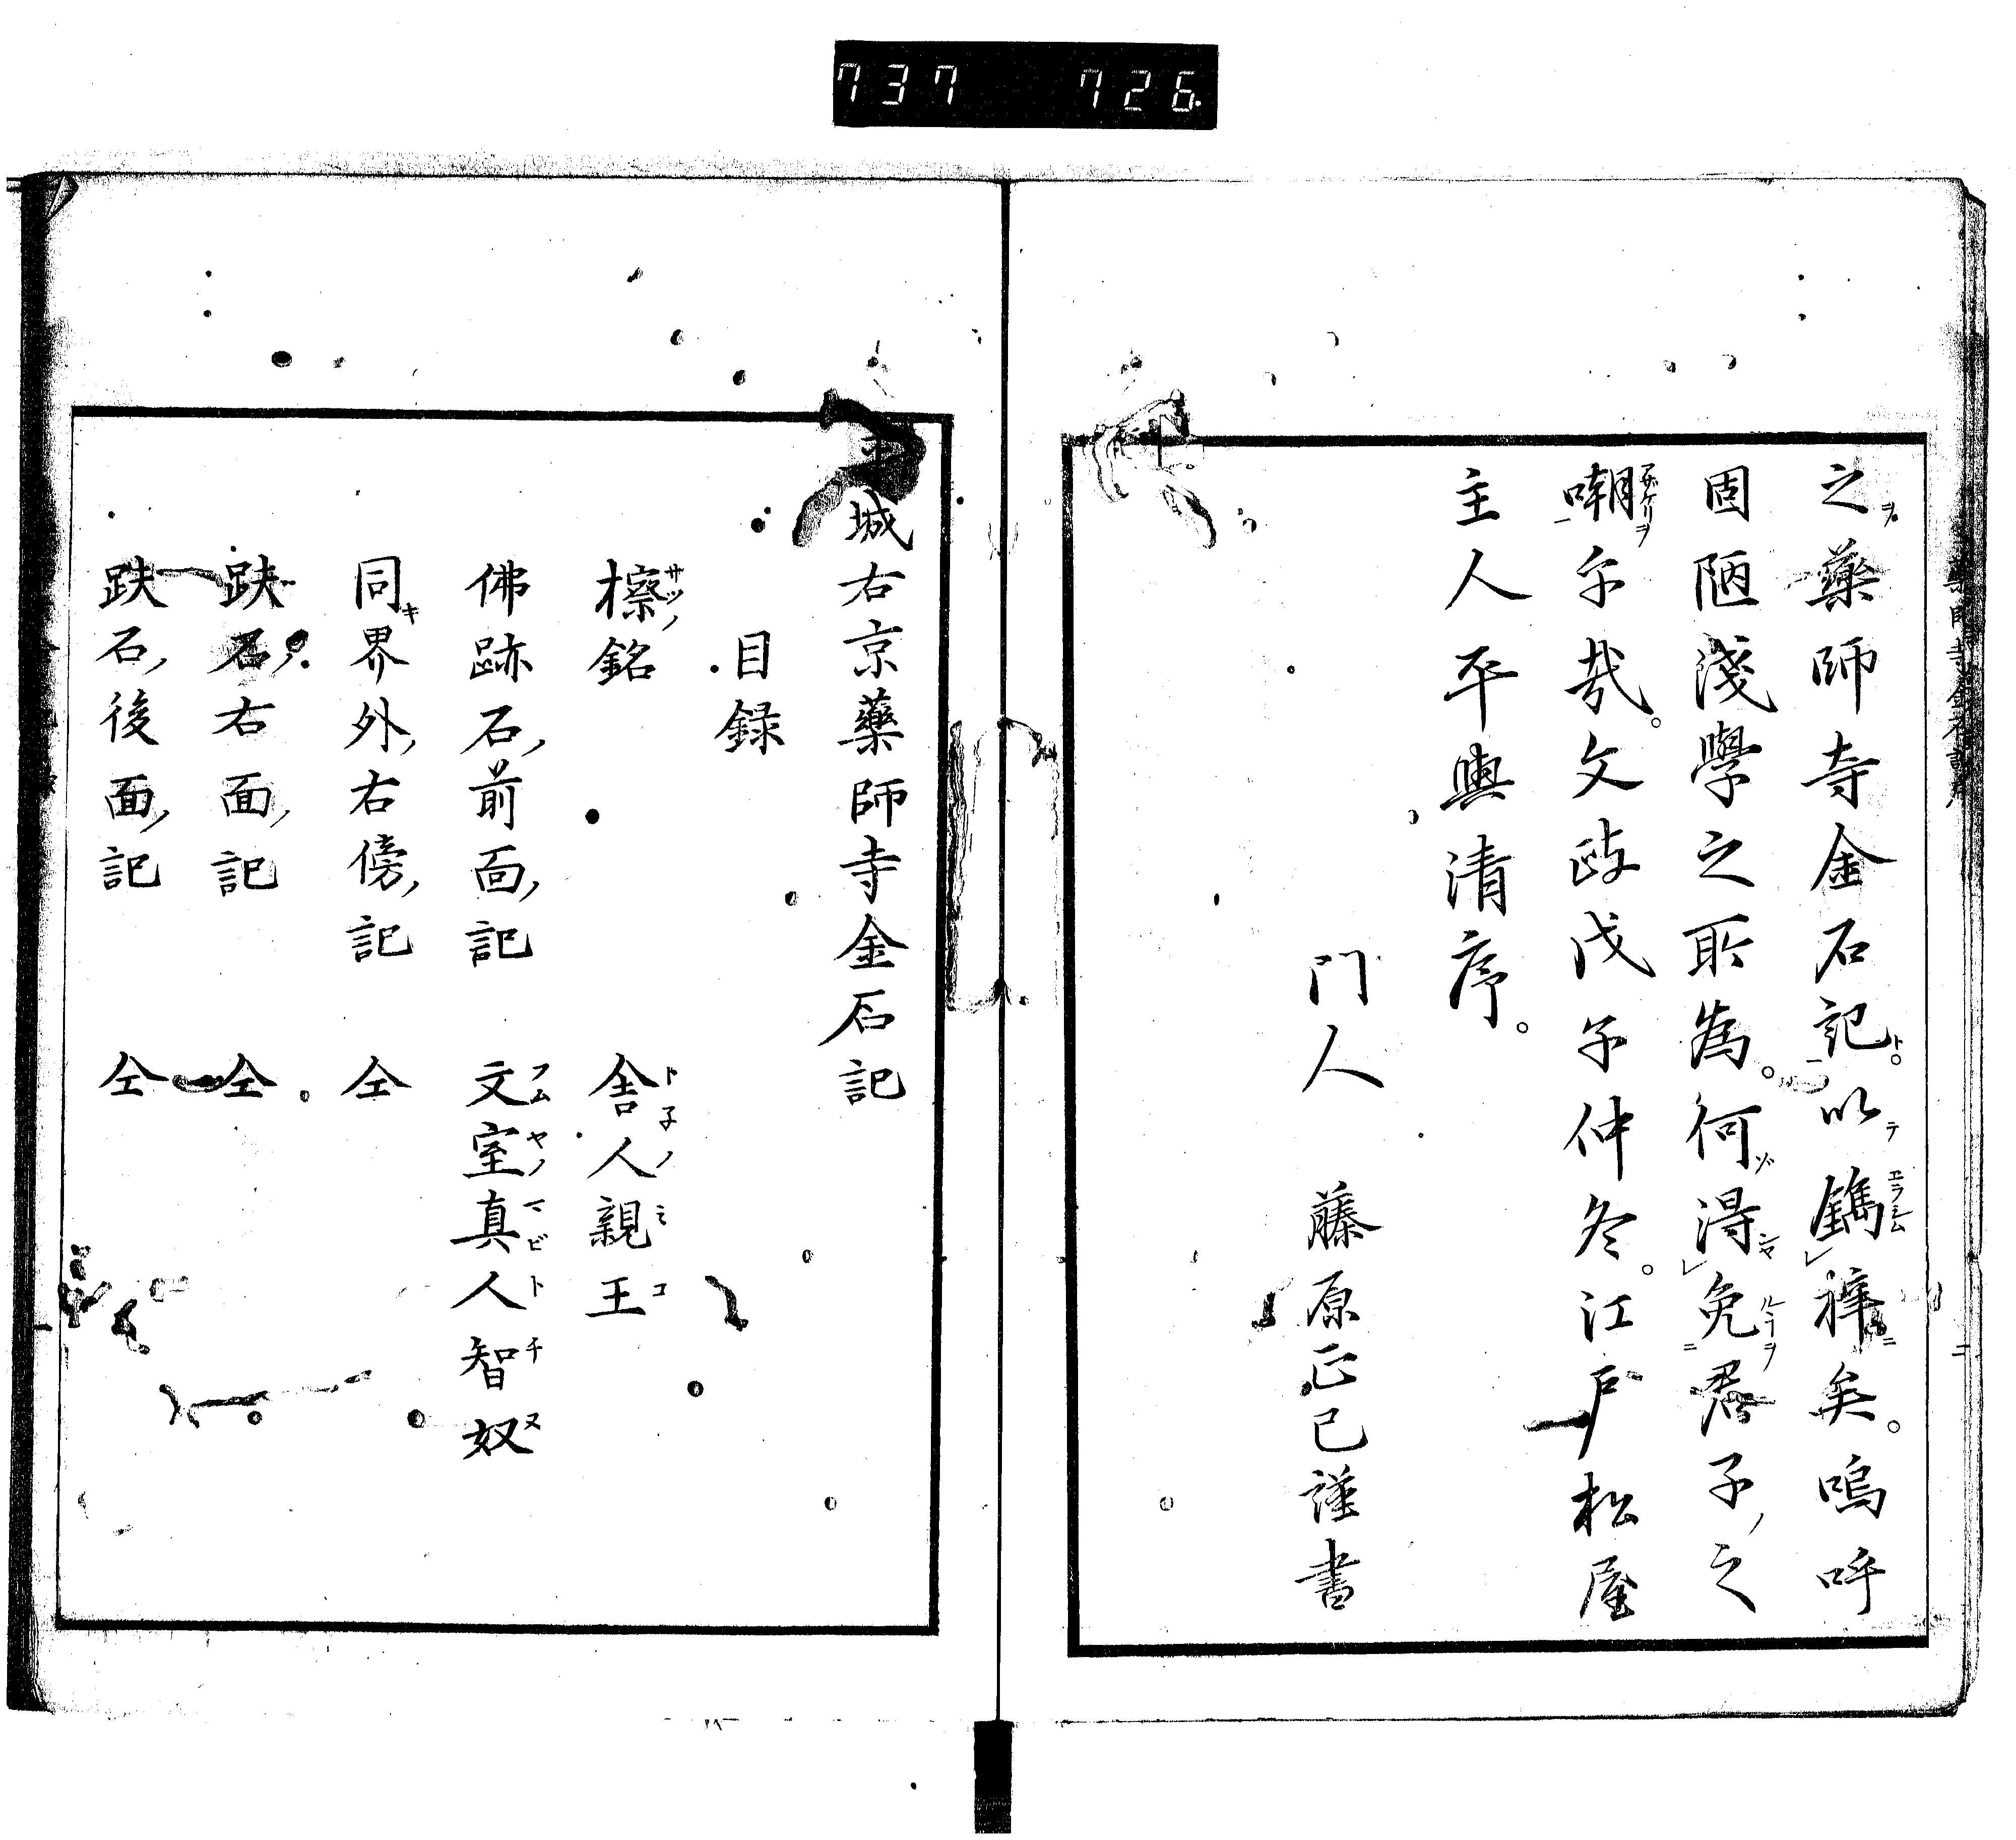 737 726
之藥師寺金石記以鐫梓矣嗚呼
固陋淺學之所為何得免君子ノ之
嘲乎哉。文政戊子仲冬。江戸松屋
主人平與清序。
門人 藤原正己謹書
平城右京藥師寺金石記
目録
檫銘 舎人親王
佛跡石ノ前面ノ記 文室真人智奴
同界外ノ右傍ノ記 仝
趺石ノ右面ノ記 仝
趺石ノ後面ノ記 仝